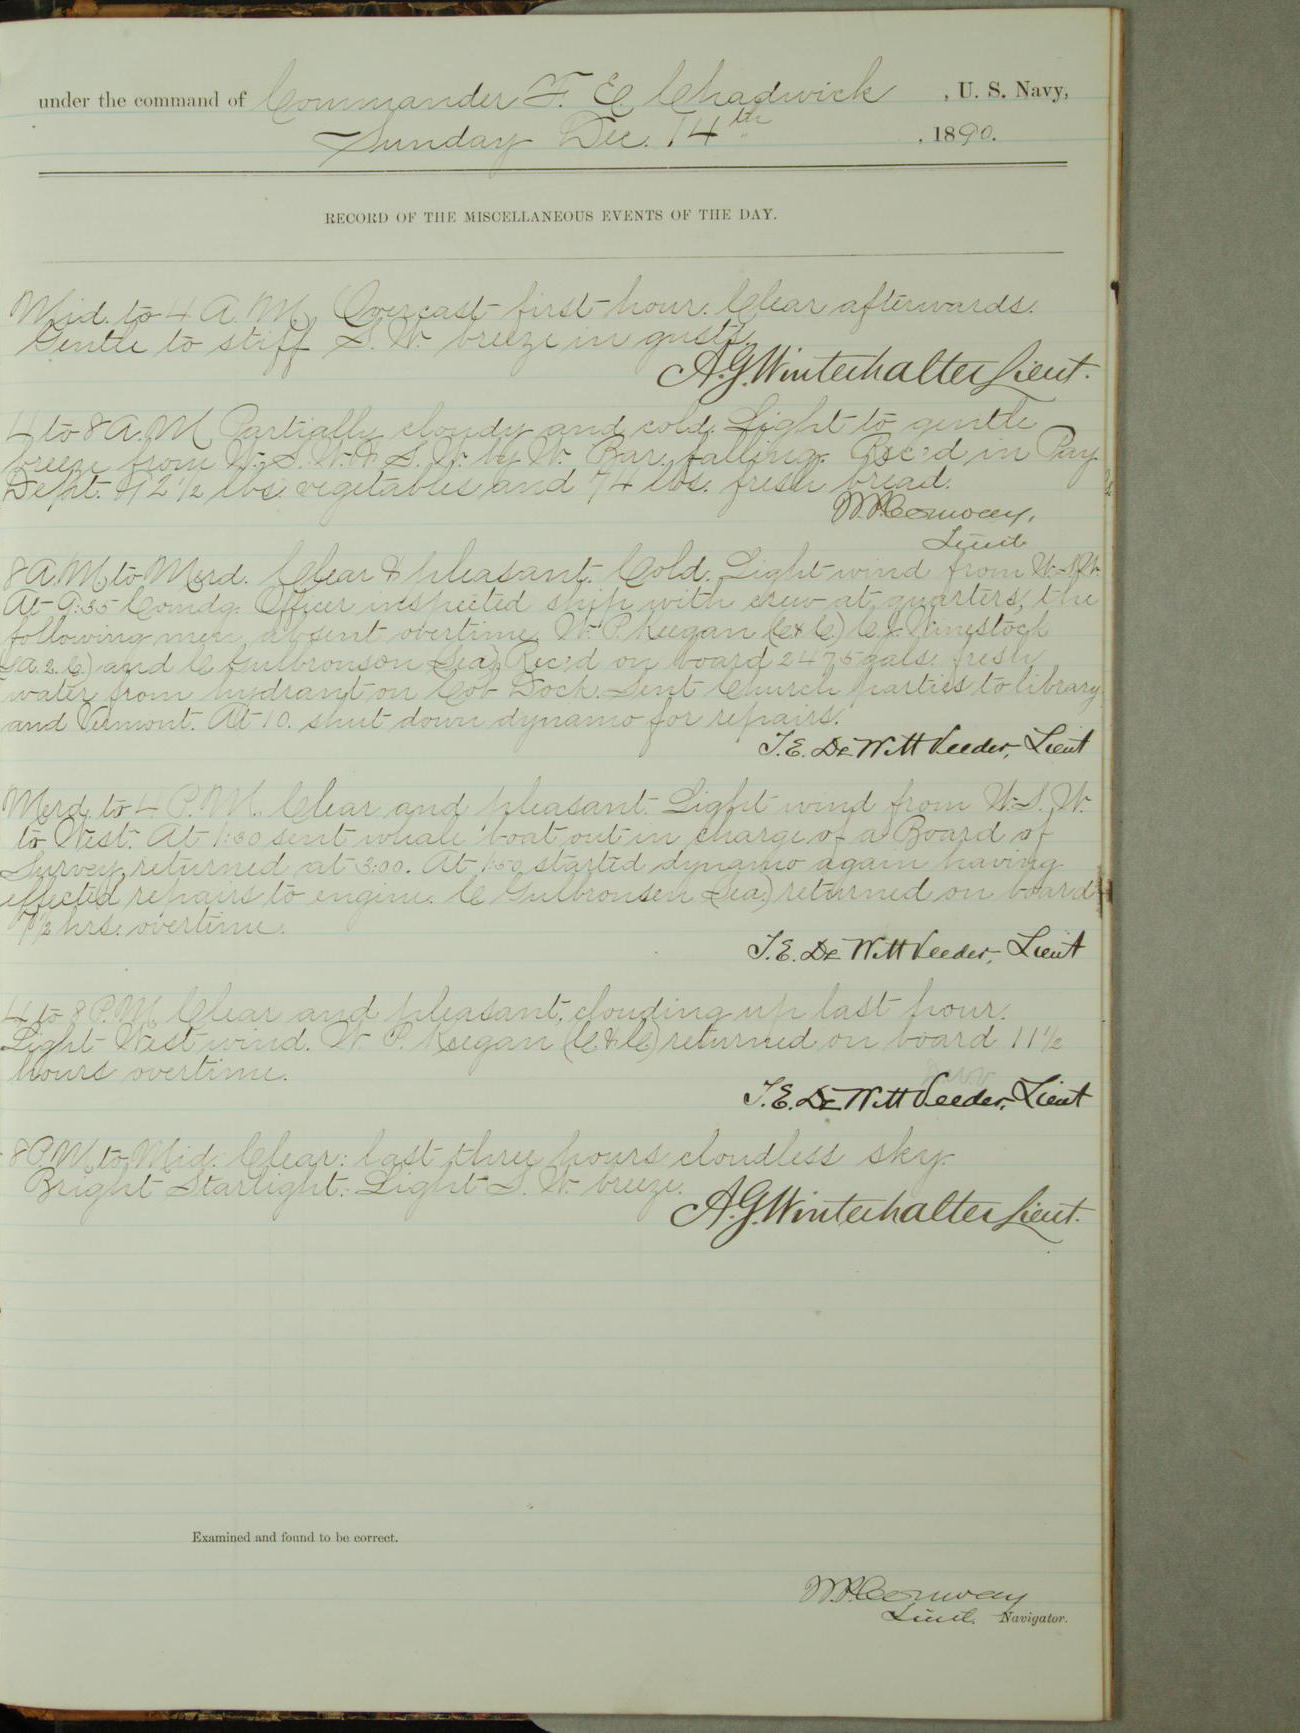 under the command of Commander F. E. Chadwick, U. S. Navy,
Sunday Dec. 14th, 1890.
RECORD OF THE MISCELLANEOUS EVENTS OF THE DAY.
Mid. to 4 A.M. Overcast first hour. Clear afterwards.
Gentle to stiff S. W. breeze in gusts.
A.G. Winterhalter Lieut.
4 to 8 A.M. Partially cloudy and cold. Light to gentle
breeze from W.S.W. & S.W. by W. Bar. falling. Rec'd in Pay
Dept. 112½ lbs. vegetables and 74 lbs. fresh bread.
W.P. Conway,
Lieut.
8 A.M. to Merd. Clear & pleasant. Cold. Light wind from W.S.W.
At 9:35 Comdg. Officer inspected ship with crew at quarters, the
following men absent overtime. W. P. Keegan (C & C) C.J. Winestock
(a. 2. C) and C Gulbronson (Sea). Rec'd on board 2475 gals. fresh
water from hydrant on Cob Dock. Sent Church parties to library
and Vermont. At 10. shut down dynamo for repairs.
T.E. DeWitt Veeder, Lieut
Merd. to 4 P.M. Clear and pleasant. Light wind from W.S.W.
to West. At 1:30 sent whale boat out in charge of a Board of
Survey, returned at 3:00. At 1:50 started dynamo again having
effected repairs to engine. C Gulbronsen (Sea) returned on board
7½ hrs. overtime.
T.E. DeWitt Veeder, Lieut
4 to 8 P.M. Clear and pleasant, clouding up last hour.
Light West wind. W. P. Keegan (C & C) returned on board 11½
hours overtime.
T.E. DeWitt Veeder, Lieut
8 P.M. to Mid. Clear: last three hours cloudless sky.
Bright Starlight. Light S. W. breeze.
A.G. Winterhalter Lieut.
Examined and found to be correct.
W.P. Conway
Lieut. Navigator.